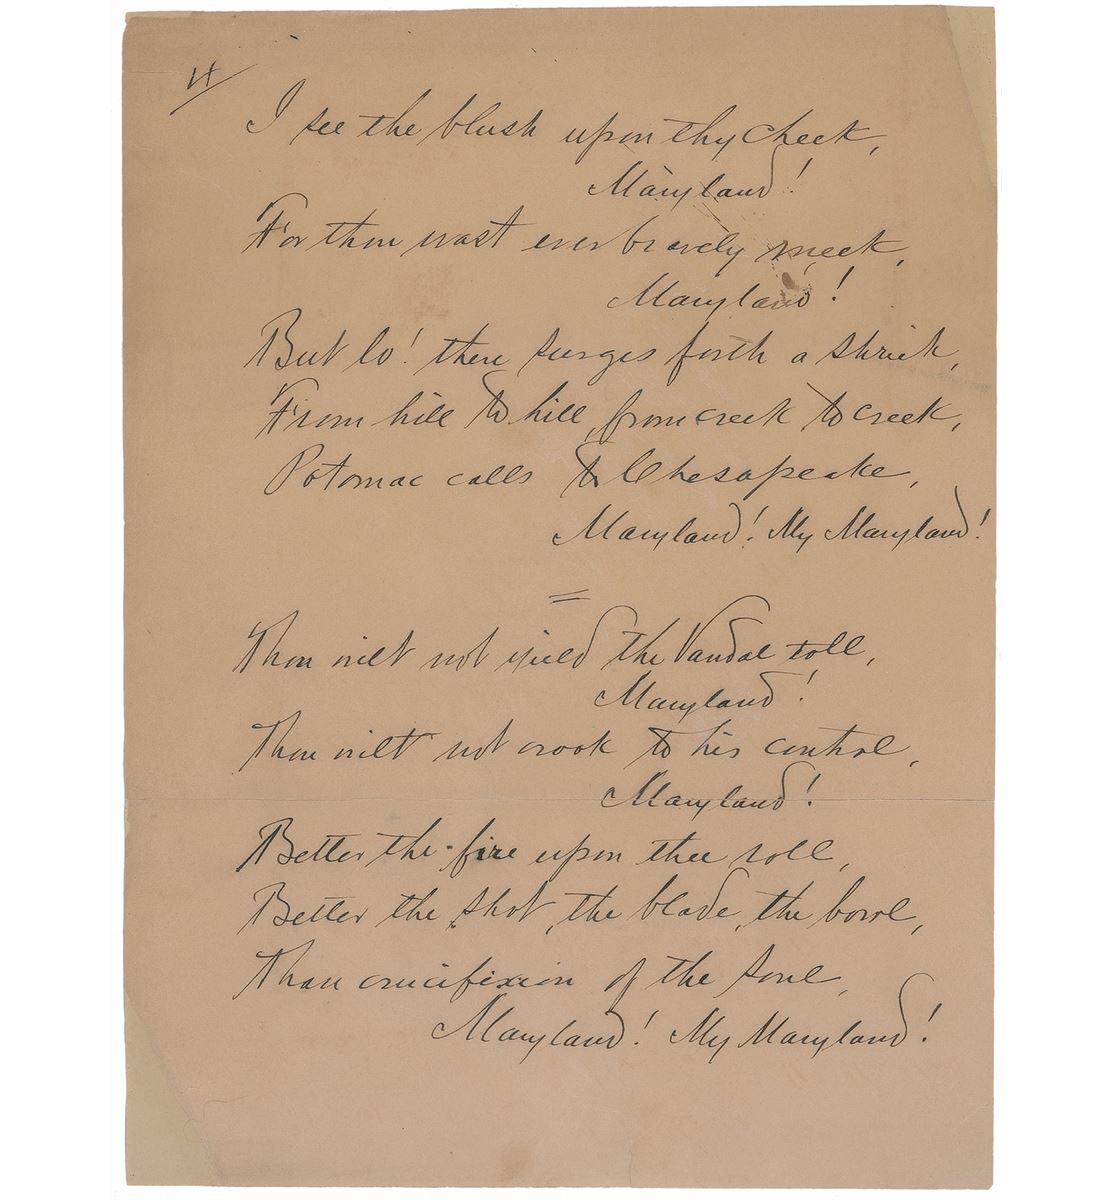 4
I see the blush upon thy cheek,
Maryland!
For thou wast ever bravely meek,
Maryland!
But lo! there surges forth a shriek,
From hill to hill, from creek to creek,
Potomac calls to Chesapeake,
Maryland! My Maryland!
=
Thou wilt not yield the Vandal toll,
Maryland!
Thou wilt not crook to his control,
Maryland!
Better the fire upon thee roll,
Better the shot, the blade, the bowl,
Than crucifixion of the soul,
Maryland! My Maryland!